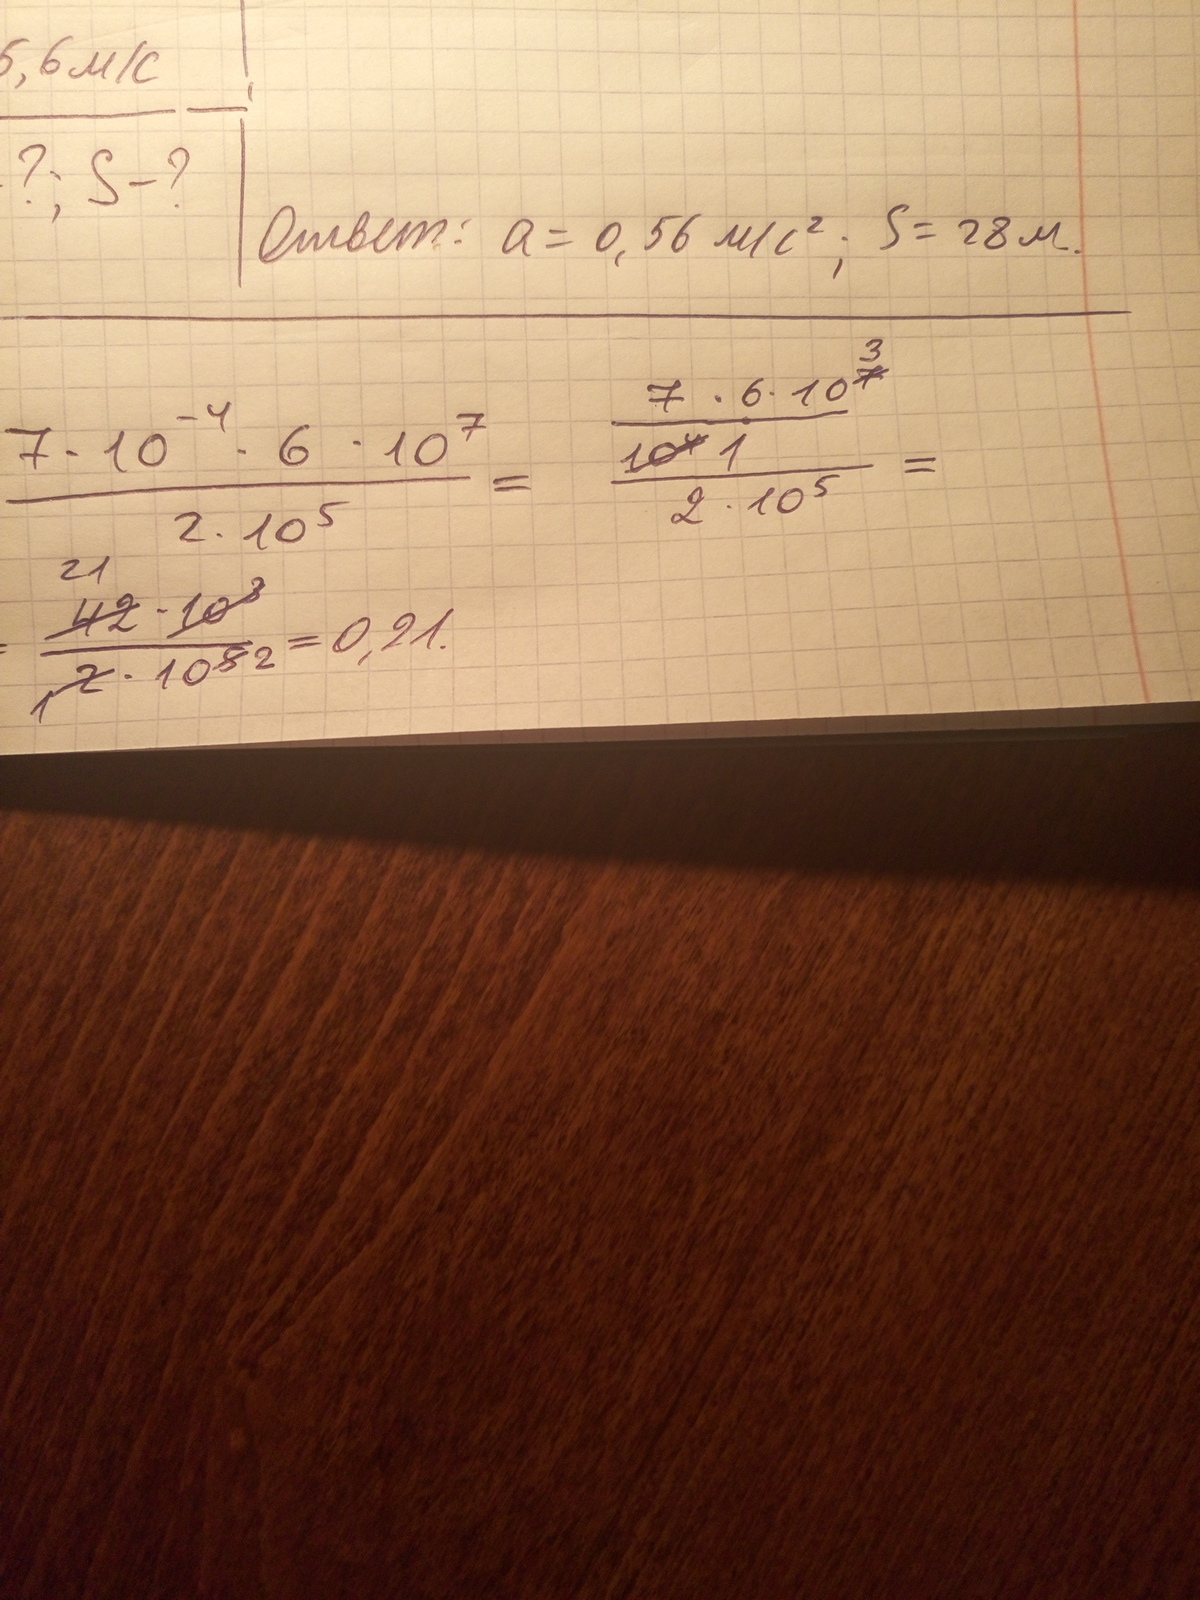 5,6 м/с
-?; S-?
Ответ: a = 0,56 м/с²; S = 28 м.
7·10⁻⁴·6·10⁷ / 2·10⁵ = 7·6·10⁷ ³ / 10⁴ 1 / 2·10⁵ =
= 42 21·10³ / 2 1·10⁵ ² = 0,21.